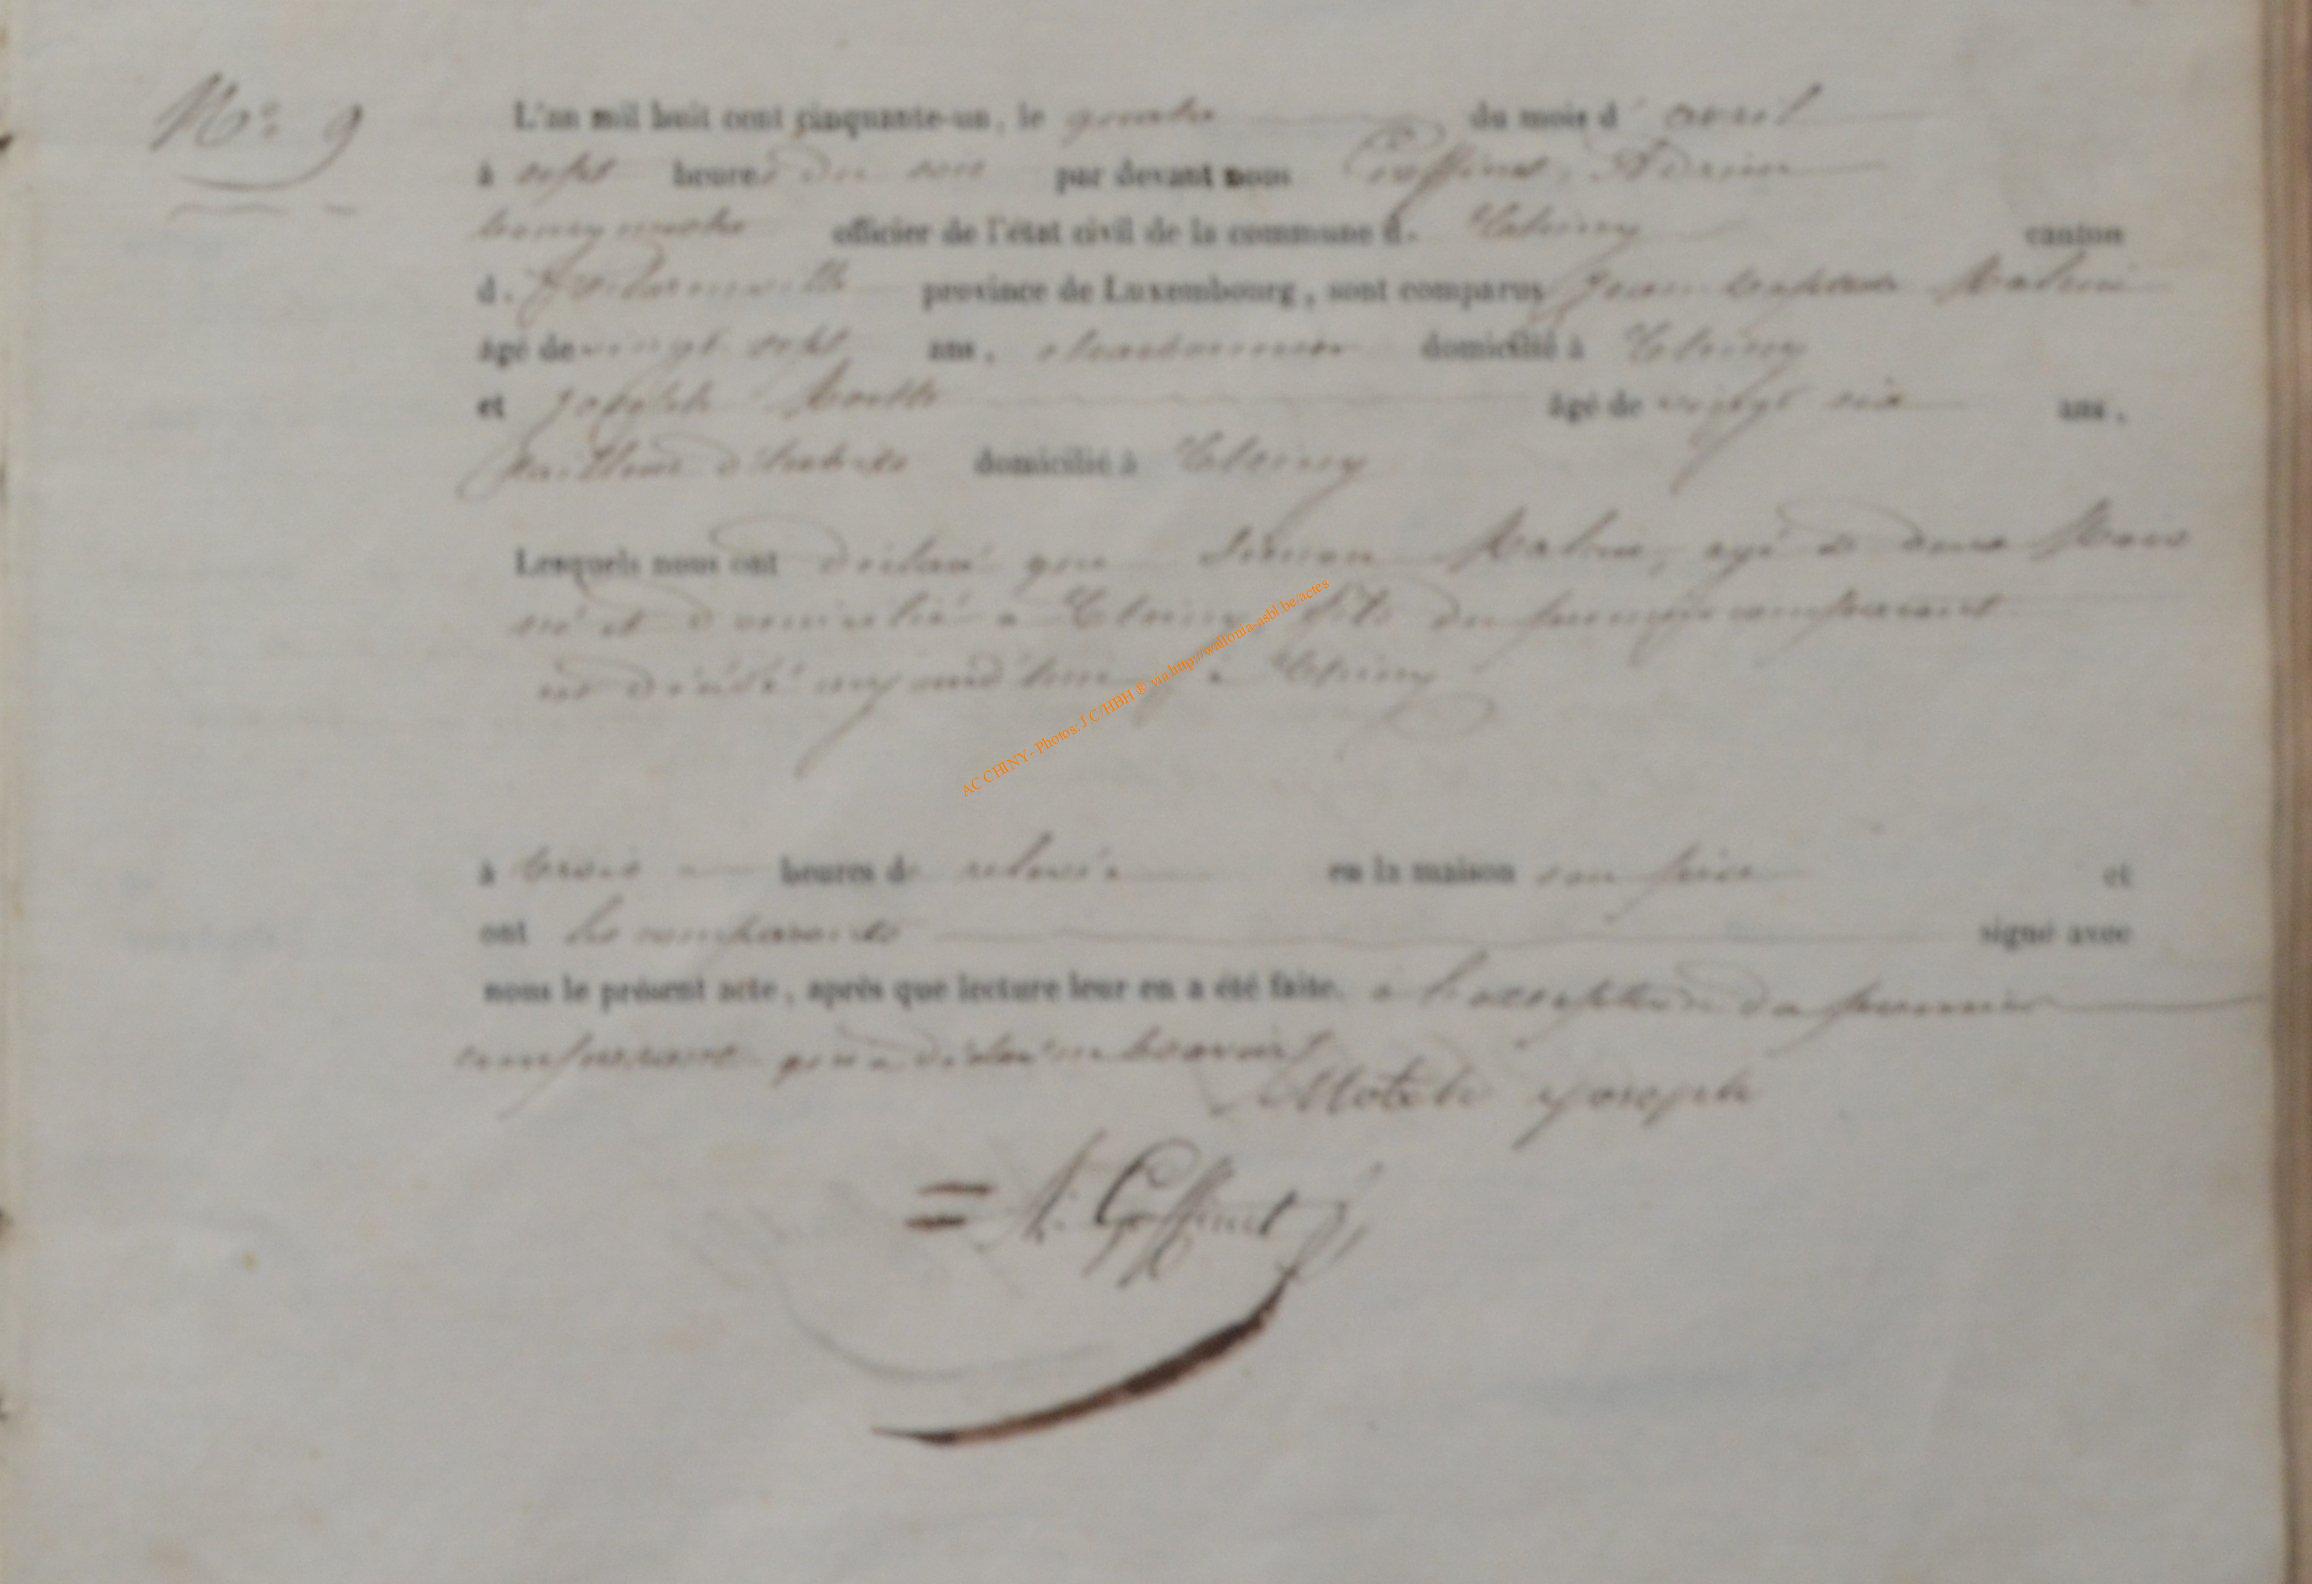 N° 9
L'an mil huit cent cinquante-un, le quatre du mois d'avril
à sept heures du soir par devant nous Goffinet, Adrien
bourgmestre officier de l'état civil de la commune d. Chiny canton
d. Florenville province de Luxembourg, sont comparus Jean
âgé de vingt sept ans, charbonnier domicilié à Chiny
et Joseph âgé de vingt six ans,
tailleur d'habits domicilié à Chiny
Lesquels nous ont déclaré que agé de deux Mois
né et domicilié à Chiny fils du premier comparant
est décédé aujourd'hui à Chiny
AC CHINY - Photos: J.C/HBH ® via http://wallonia-asbl.be/actes
à trois heures de relevée en la maison son père et
ont les comparants signé avec
nous le présent acte, après que lecture leur en a été faite. à l'exception du premier
comparant qui a déclaré ne le savoir
Joseph
= A. Goffinet